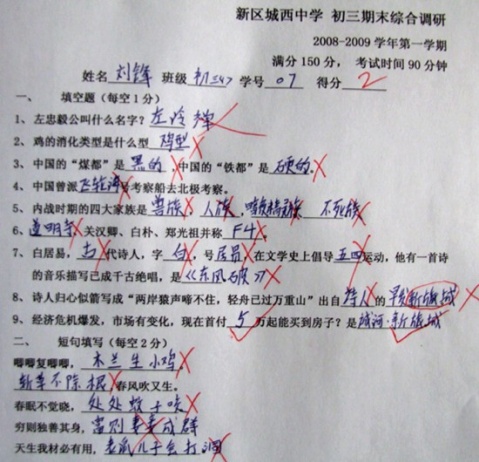 新区城西中学 初三期末综合调研
2008-2009 学年第一学期
满分 150 分, 考试时间 90 分钟
姓名 刘锋 班级 初三<4> 学号 07 得分 2
一、 填空题(每空 1 分)
1、左忠毅公叫什么名字? 左冷禅
2、鸡的消化类型是什么型 鸡型
3、中国的“煤都”是 黑的 ,中国的“铁都”是 硬的。
4、中国曾派 飞轮海 号考察船去北极考察。
5、内战时期的四大家族是 兽族、人族、暗夜精灵族 不死族
6、道明寺 关汉卿、白朴、郑光祖并称 F4
7、白居易, 古 代诗人, 字 白, 号 居易 在文学史上倡导 五四 运动, 他有一首诗
的音乐描写已成千古绝唱, 是 《东风破》
8、诗人归心似箭写成“两岸猿声啼不住, 轻舟已过万重山”出自 诗人 的 新旗城
9、经济危机爆发, 市场有变化, 现在首付 5 万起能买到房子? 是 新旗城
二、 短句填写(每空 2 分)
唧唧复唧唧, 木兰生小鸡
斩草不除根 春风吹又生。
春眠不觉晓, 处处蚊子咬
穷则独善其身, 富则妻妾成群
天生我材必有用, 老鼠儿子会打洞